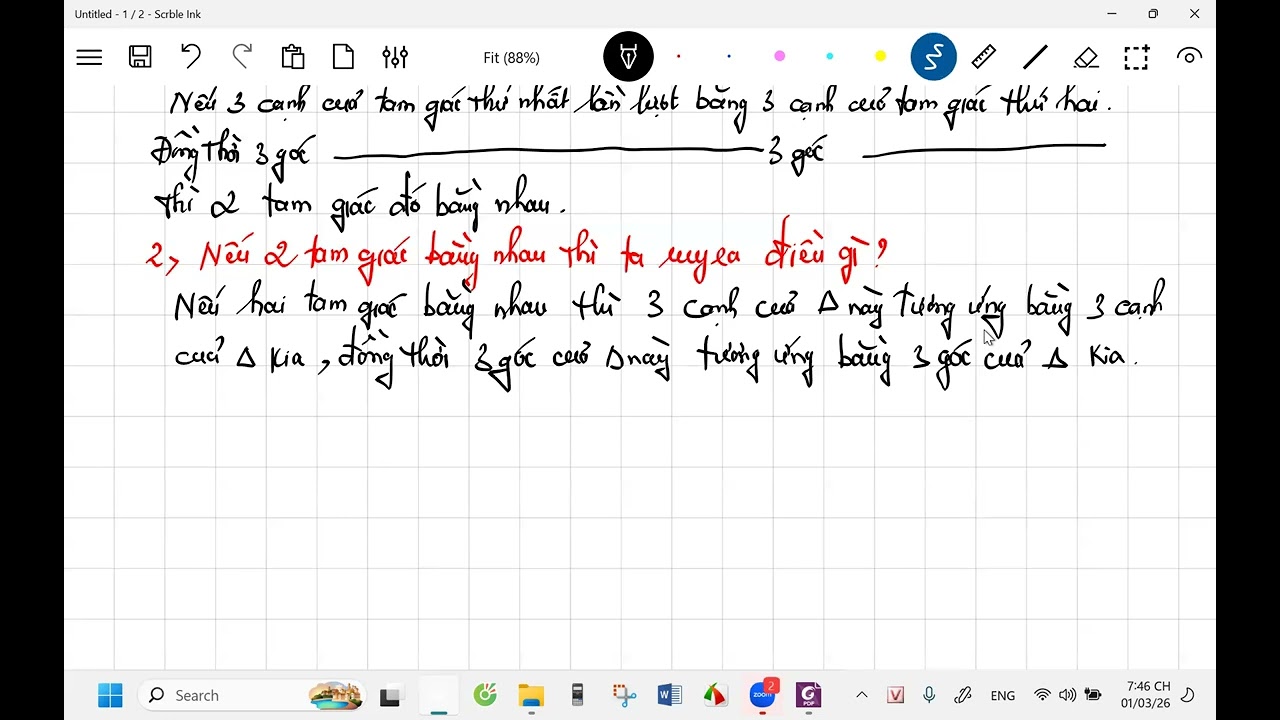 Untitled - 1 / 2 - Scrble Ink
Fit (88%)
Nếu 3 cạnh của tam giác thứ nhất lần lượt bằng 3 cạnh của tam giác thứ hai.
Đồng thời 3 góc ——— 3 góc ———
thì 2 tam giác đó bằng nhau.
2, Nếu 2 tam giác bằng nhau thì ta suy ra điều gì?
Nếu hai tam giác bằng nhau thì 3 cạnh của Δ này tương ứng bằng 3 cạnh
của Δ kia, đồng thời 3 góc của Δ này tương ứng bằng 3 góc của Δ kia.
Search
zoom
2
PDF
ENG
7:46 CH
01/03/26